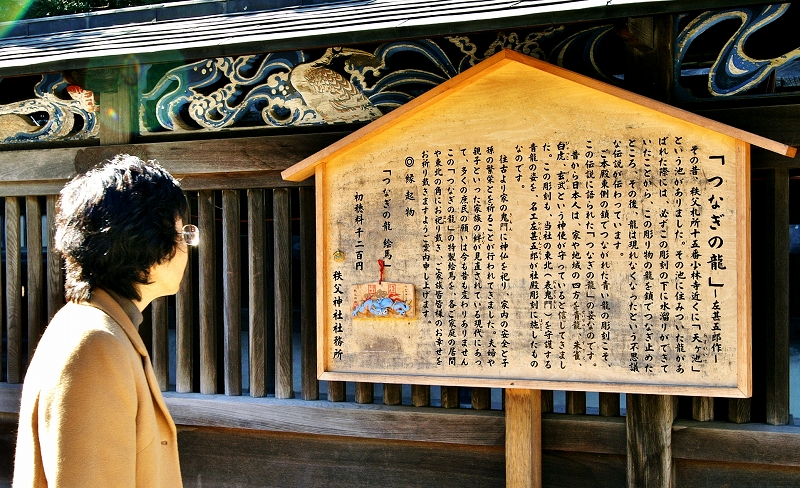 「つなぎの龍」 ―左甚五郎作―
その昔、秩父札所十五番少林寺近くに「天ヶ池」
という池がありました。その池に住みついた龍があ
ばれた際には、必ずこの彫刻の下に水溜りができて
いたことから、この彫り物の龍を鎖でつなぎ止めた
ところ、その後、龍は現れなくなったという不思議
な伝説が伝わっています。
ご本殿東側の鎖でつながれた青い龍の彫刻こそ、
この伝説に語られた「つなぎの龍」の姿なのです。
昔から日本人は、家や地域の四方を青龍、朱雀、
白虎、玄武という神使が守っていると信じてきまし
た。この彫刻も、当社の東北(表鬼門)を守護する
青龍の姿を、名工左甚五郎が社殿彫刻に施したもの
なのです。
往古より家の鬼門に神仏を祀り、家内の安全と子
孫の繁栄とを祈ることが行われてきました。夫婦や
親子といった家族の絆が見直されている現代にあっ
て、多くの庶民の願いは今も昔も変わりありません。
この「つなぎの龍」の特製絵馬を、各ご家庭の居間
や東北の角にお祀り戴き、ご家族皆皆様のお幸せを
お祈り戴きますようご案内申し上げます。
◎縁起物
「つなぎの龍 絵馬」
初穂料千二百円
秩父神社社務所